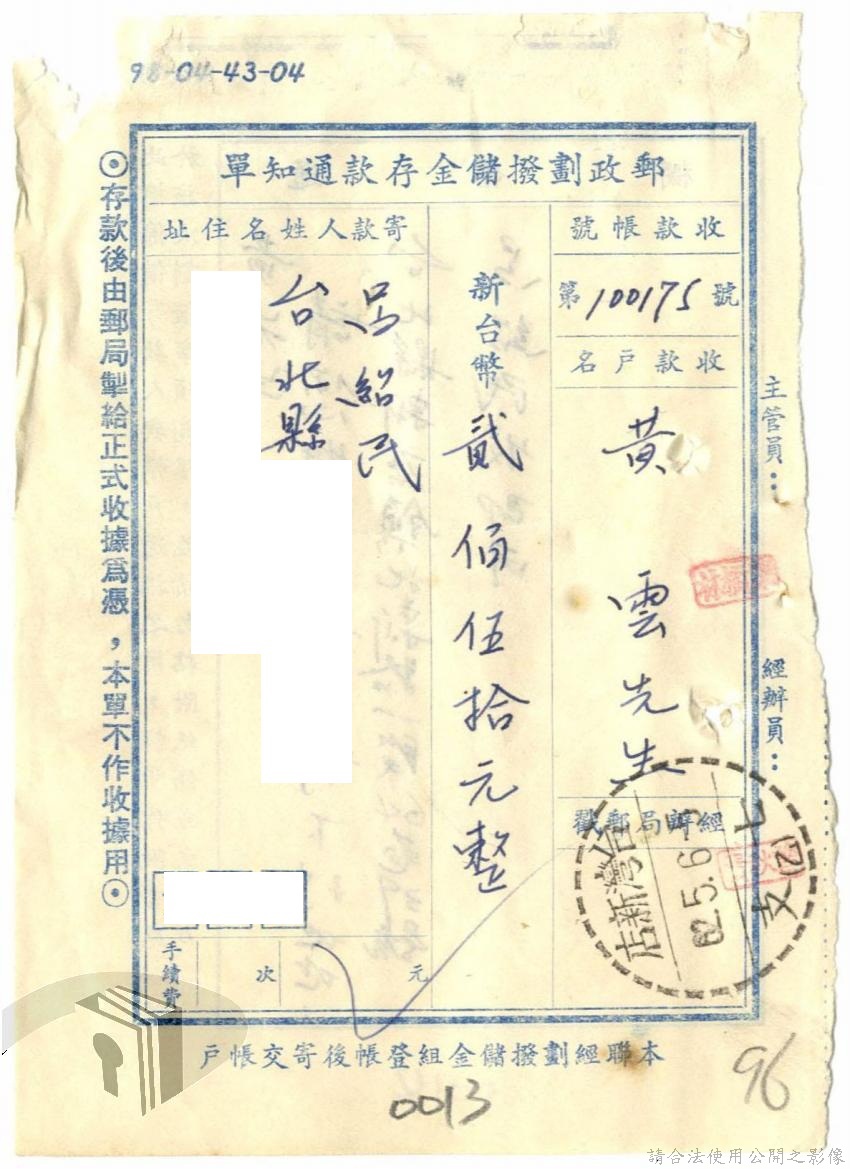 98-04-43-04
郵政劃撥儲金存款通知單
收款帳號
第100175號
收款戶名
黃雲先生
經辦局郵戳
台灣新店
62.5.6
七支(乙)
新台幣
貳佰伍拾元整
寄款人姓名住址
呂紹民
台北縣
手續費
次
元
主管員：
經辦員：
⊙存款後由郵局掣給正式收據為憑，本單不作收據用⊙
本聯經劃撥儲金組登帳後寄交帳戶
0013
96
請合法使用公開之影像